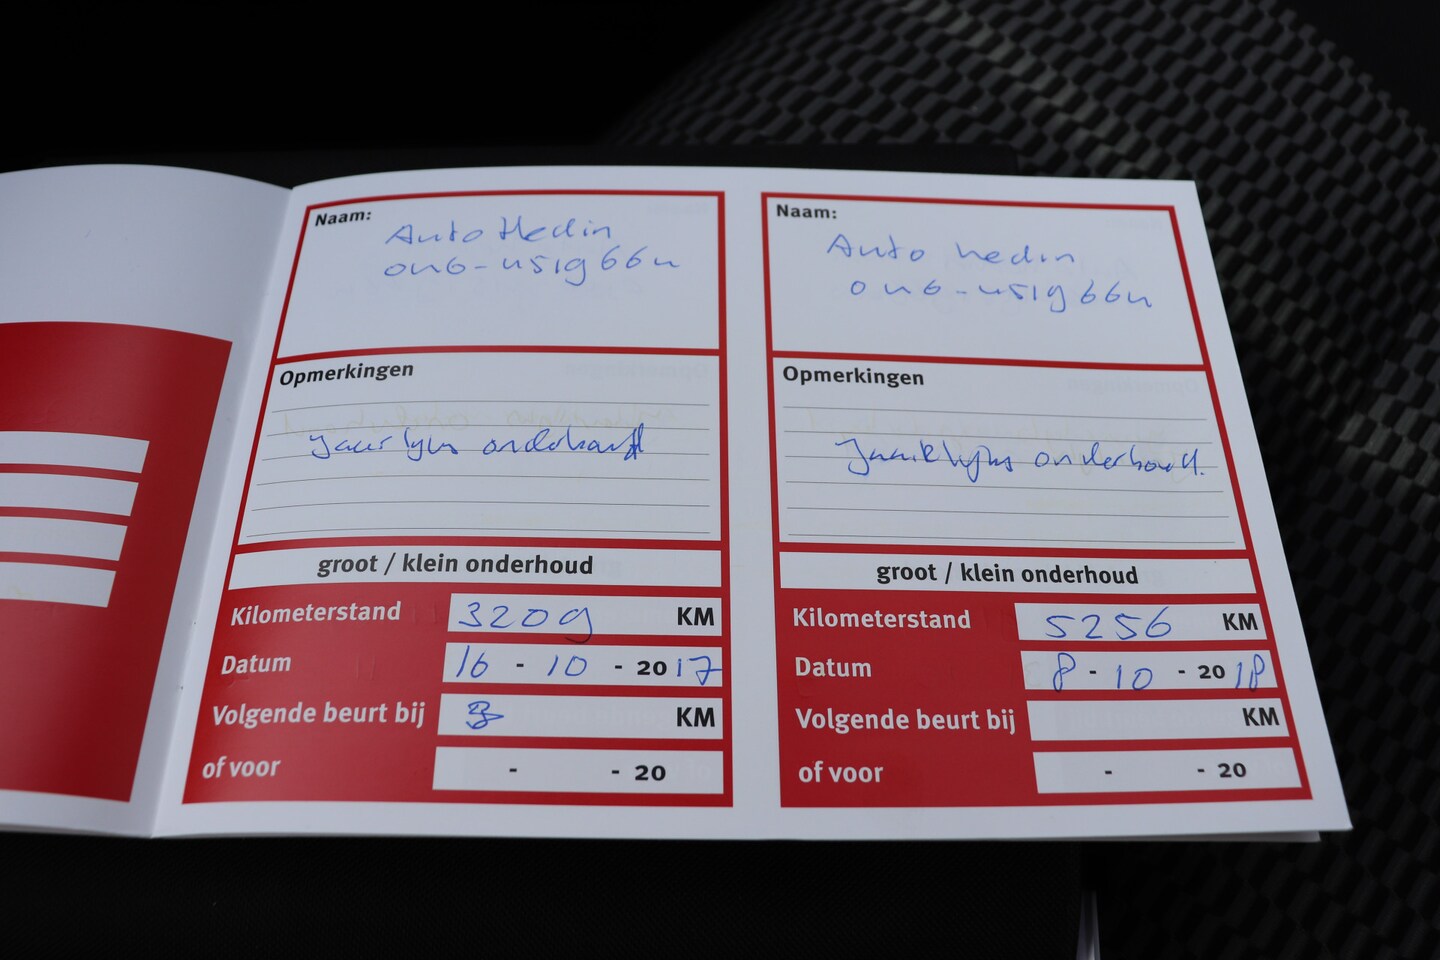 Naam:
Auto Hedin
046-4519664
Opmerkingen
jaarlijks onderhoud
groot / klein onderhoud
Kilometerstand 3209 KM
Datum 16 - 10 - 2017
Volgende beurt bij KM
of voor - - 20
Naam:
Auto hedin
046-4519664
Opmerkingen
Jaarlijks onderhoud.
groot / klein onderhoud
Kilometerstand 5256 KM
Datum 8 - 10 - 2018
Volgende beurt bij KM
of voor - - 20